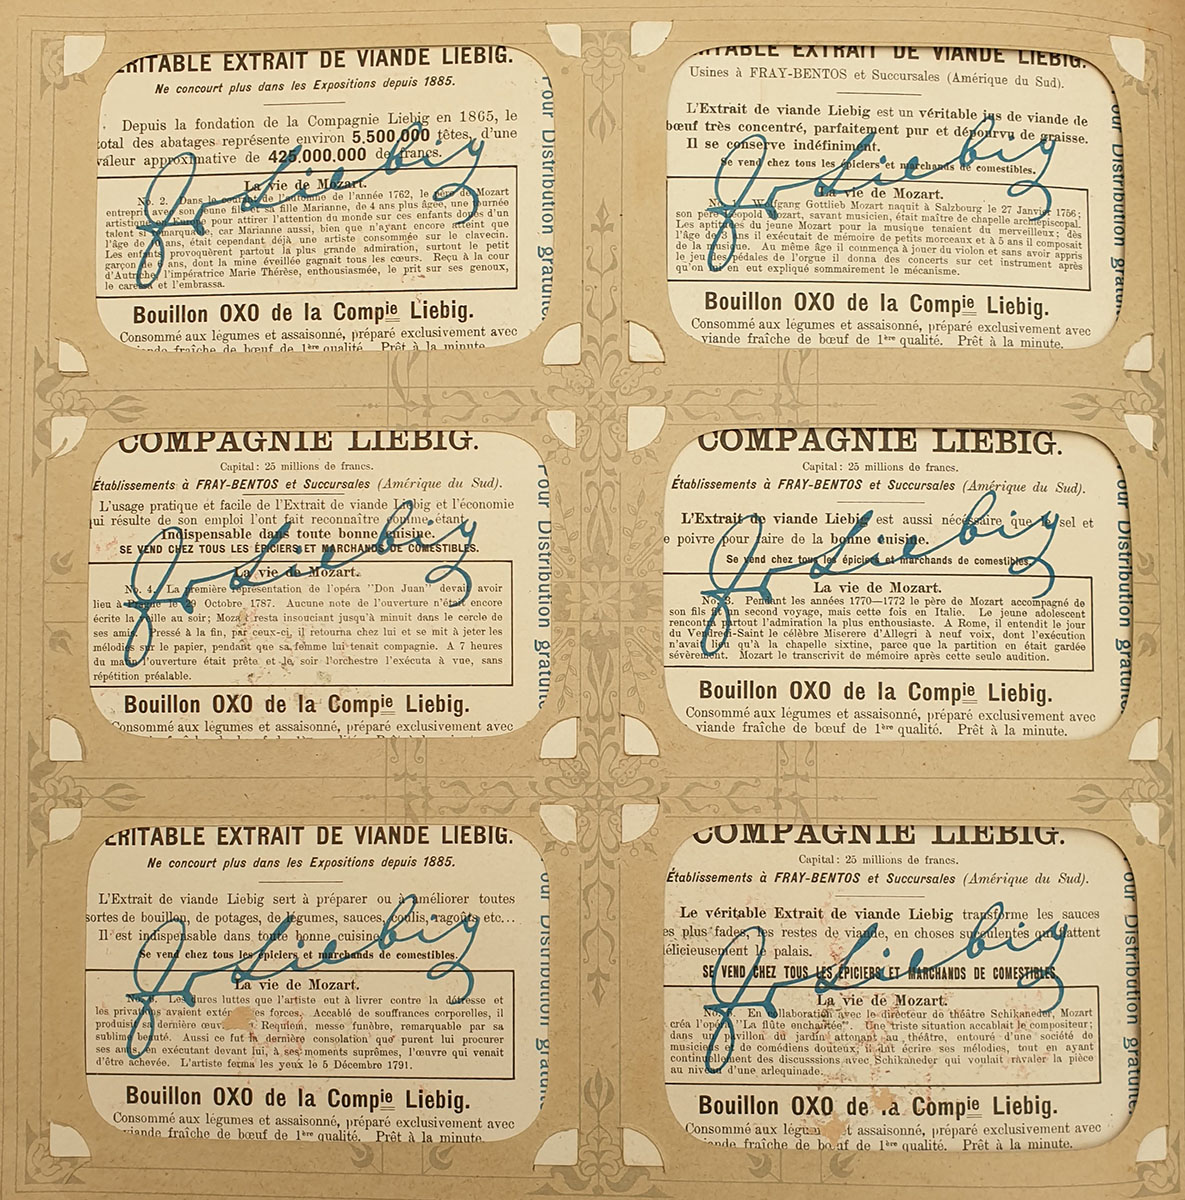 ÉRITABLE EXTRAIT DE VIANDE LIEBIG.
Ne concourt plus dans les Expositions depuis 1885.
Depuis la fondation de la Compagnie Liebig en 1865, le
total des abatages représente environ 5,500,000 têtes, d'une
valeur approximative de 425.000.000 de francs.
La vie de Mozart.
No. 2. Dans le courant de l'automne de l'année 1762, le père de Mozart
entreprit avec son jeune fils et sa fille Marianne, de 4 ans plus âgée, une tournée
artistique en Europe pour attirer l'attention du monde sur ces enfants doués d'un
talent si marquable, car Marianne aussi, bien que n'ayant encore atteint que
l'âge de ans, était cependant déjà une artiste consommée sur le clavecin.
Les enfants provoquèrent partout la plus grande admiration, surtout le petit
garçon de 6 ans, dont la mine éveillée gagnait tous les cœurs. Reçu à la cour
d'Autriche l'impératrice Marie Thérèse, enthousiasmée, le prit sur ses genoux,
le caressa et l'embrassa.
Bouillon OXO de la Compie Liebig.
Consommé aux légumes et assaisonné, préparé exclusivement avec
viande fraîche de bœuf de 1ère qualité. Prêt à la minute.
Pour Distribution gratuite
Jv Liebig
RITABLE EXTRAIT DE VIANDE LIEBIG.
Usines à FRAY-BENTOS et Succursales (Amérique du Sud).
L'Extrait de viande Liebig est un véritable jus de viande de
bœuf très concentré, parfaitement pur et dépourvu de graisse.
Il se conserve indéfiniment.
Se vend chez tous les épiciers et marchands de comestibles.
La vie de Mozart.
No. Wolfgang Gottlieb Mozart naquit à Salzbourg le 27 Janvier 1756;
son père Léopold Mozart, savant musicien, était maître de chapelle archiépiscopal.
Les aptitudes du jeune Mozart pour la musique tenaient du merveilleux; dès
l'âge de 3 ans il exécutait de mémoire de petits morceaux et à 5 ans il composait
de la musique. Au même âge il commença à jouer du violon et sans avoir appris
le jeu des pédales de l'orgue il donna des concerts sur cet instrument après
qu'on lui en eut expliqué sommairement le mécanisme.
Bouillon OXO de la Compie Liebig.
Consommé aux légumes et assaisonné, préparé exclusivement avec
viande fraîche de bœuf de 1ère qualité. Prêt à la minute.
Pour Distribution gratuite
Jv Liebig
COMPAGNIE LIEBIG.
Capital: 25 millions de francs.
Établissements à FRAY-BENTOS et Succursales (Amérique du Sud).
L'usage pratique et facile de l'Extrait de viande Liebig et l'économie
qui résulte de son emploi l'ont fait reconnaître comme étant
Indispensable dans toute bonne cuisine.
SE VEND CHEZ TOUS LES ÉPICIERS ET MARCHANDS DE COMESTIBLES.
La vie de Mozart.
No. 4. La première représentation de l'opéra "Don Juan" devait avoir
lieu à Prague le 29 Octobre 1787. Aucune note de l'ouverture n'était encore
écrite la veille au soir; Mozart resta insouciant jusqu'à minuit dans le cercle de
ses amis. Pressé à la fin, par ceux-ci, il retourna chez lui et se mit à jeter les
mélodies sur le papier, pendant que sa femme lui tenait compagnie. A 7 heures
du matin l'ouverture était prête et le soir l'orchestre l'exécuta à vue, sans
répétition préalable.
Bouillon OXO de la Compie Liebig.
Consommé aux légumes et assaisonné, préparé exclusivement avec
Pour Distribution gratuite
Jv Liebig
COMPAGNIE LIEBIG.
Capital: 25 millions de francs.
Établissements à FRAY-BENTOS et Succursales (Amérique du Sud).
L'Extrait de viande Liebig est aussi nécessaire que le sel et
le poivre pour faire de la bonne cuisine.
Se vend chez tous les épiciers et marchands de comestibles.
La vie de Mozart.
No. 3. Pendant les années 1770—1772 le père de Mozart accompagné de
son fils fit un second voyage, mais cette fois en Italie. Le jeune adolescent
rencontra partout l'admiration la plus enthousiaste. A Rome, il entendit le jour
du Vendredi-Saint le célèbre Miserere d'Allegri à neuf voix, dont l'exécution
n'avait lieu qu'à la chapelle sixtine, parce que la partition en était gardée
sévèrement. Mozart le transcrivit de mémoire après cette seule audition.
Bouillon OXO de la Compie Liebig.
Consommé aux légumes et assaisonné, préparé exclusivement avec
viande fraîche de bœuf de 1ère qualité. Prêt à la minute.
Pour Distribution gratuite
Jv Liebig
ÉRITABLE EXTRAIT DE VIANDE LIEBIG.
Ne concourt plus dans les Expositions depuis 1885.
L'Extrait de viande Liebig sert à préparer ou à améliorer toutes
sortes de bouillon, de potages, de légumes, sauces, coulis, ragoûts etc...
Il est indispensable dans toute bonne cuisine.
Se vend chez tous les épiciers et marchands de comestibles.
La vie de Mozart.
No. 6. Les dures luttes que l'artiste eut à livrer contre la détresse et
les privations avaient exténué ses forces. Accablé de souffrances corporelles, il
produisit sa dernière œuvre Requiem, messe funèbre, remarquable par sa
sublime beauté. Aussi ce fut la dernière consolation que purent lui procurer
ses amis en exécutant devant lui, à ses moments suprêmes, l'œuvre qui venait
d'être achevée. L'artiste ferma les yeux le 5 Décembre 1791.
Bouillon OXO de la Compie Liebig.
Consommé aux légumes et assaisonné, préparé exclusivement avec
viande fraîche de bœuf de 1ère qualité. Prêt à la minute.
Pour Distribution gratuite
Jv Liebig
COMPAGNIE LIEBIG.
Capital: 25 millions de francs.
Établissements à FRAY-BENTOS et Succursales (Amérique du Sud).
Le véritable Extrait de viande Liebig transforme les sauces
les plus fades, les restes de viande, en choses succulentes qui flattent
délicieusement le palais.
SE VEND CHEZ TOUS LES ÉPICIERS ET MARCHANDS DE COMESTIBLES.
La vie de Mozart.
No. En collaboration avec le directeur de théâtre Schikaneder, Mozart
créa l'opéra "La flûte enchantée". Une triste situation accablait le compositeur;
dans un pavillon du jardin attenant au théâtre, entouré d'une société de
musiciens et de comédiens douteux, il dut écrire ses mélodies, tout en ayant
continuellement des discusssions avec Schikaneder qui voulait ravaler la pièce
au niveau d'une arlequinade.
Bouillon OXO de la Compie Liebig.
Consommé aux légumes et assaisonné, préparé exclusivement avec
viande fraîche de bœuf de 1ère qualité. Prêt à la minute.
Pour Distribution gratuite
Jv Liebig